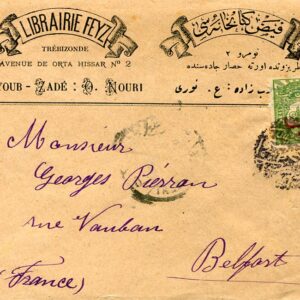 LIBRAIRIE FEYZ
TRÉBIZONDE
AVENUE DE ORTA HISSAR Nº 2
YOUR-ZADÉ: O. NOURI
فيض كتابخانه سى
نومرو ٢
طربزونده اورته حصار جاده سنده
زاده : ع. نورى
Monsieur
Georges Piérron
rue Vauban
Belfort
(France)